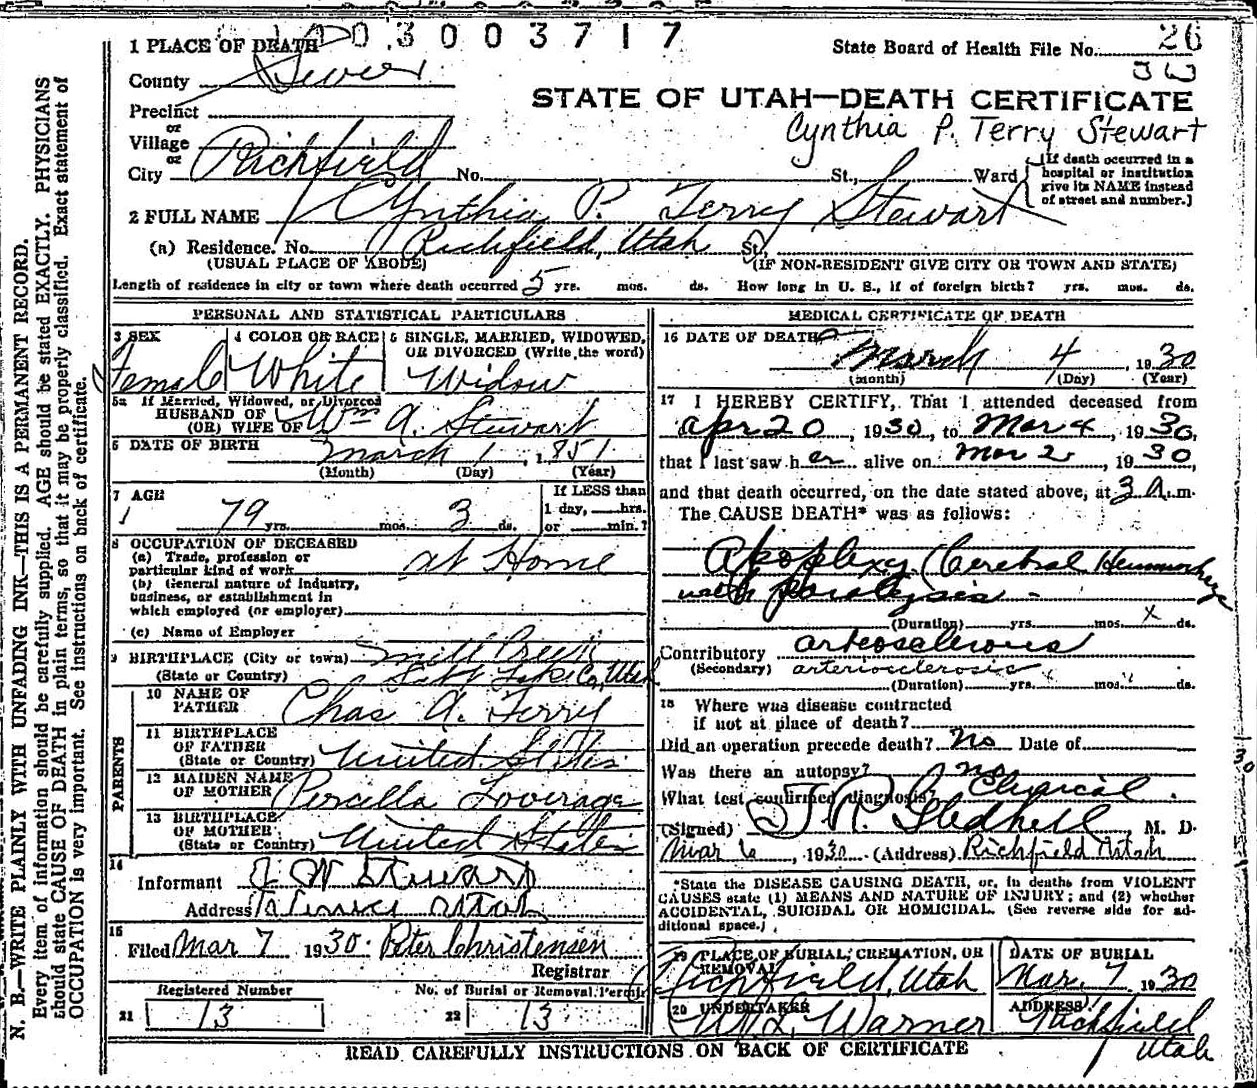 1003003717
1 PLACE OF DEATH
State Board of Health File No. 26
County Sevier
STATE OF UTAH—DEATH CERTIFICATE
Precinct
or
Village
Cynthia P. Terry Stewart
or
City Richfield No. St., Ward
(If death occurred in a
hospital or institution
give its NAME instead
of street and number.)
2 FULL NAME Cynthia P. Terry Stewart
(a) Residence. No. Richfield, Utah St.
(USUAL PLACE OF ABODE) (IF NON-RESIDENT GIVE CITY OR TOWN AND STATE)
Length of residence in city or town where death occurred 5 yrs. mos. ds. How long in U. S., if of foreign birth? yrs. mos. ds.
PERSONAL AND STATISTICAL PARTICULARS
3 SEX
Female
4 COLOR OR RACE
White
5 SINGLE, MARRIED, WIDOWED,
OR DIVORCED (Write the word)
Widow
5a If Married, Widowed, or Divorced
HUSBAND OF
(OR) WIFE OF Wm A. Stewart
6 DATE OF BIRTH March 1, 1851
(Month) (Day) (Year)
7 AGE
79 yrs. mos. 3 ds.
If LESS than
1 day, hrs.
or min.?
8 OCCUPATION OF DECEASED
(a) Trade, profession or
particular kind of work at Home
(b) General nature of industry,
business, or establishment in
which employed (or employer)
(c) Name of Employer
9 BIRTHPLACE (City or town) Mill Creek
(State or Country) Salt Lake Co, Utah
PARENTS
10 NAME OF
FATHER Chas A. Terry
11 BIRTHPLACE
OF FATHER
(State or Country) United States
12 MAIDEN NAME
OF MOTHER Percella Loverage
13 BIRTHPLACE
OF MOTHER
(State or Country) United States
14
Informant J W Stewart
Address Utah
15
Filed Mar 7 1930. Peter Christensen
Registrar
Registered Number
21 13
No. of Burial or Removal Permit
22 13
MEDICAL CERTIFICATE OF DEATH
16 DATE OF DEATH
March 4, 1930
(month) (Day) (Year)
17 I HEREBY CERTIFY, That I attended deceased from
Apr 20, 1930, to Mar 4, 1930,
that I last saw her alive on Mar 2, 1930,
and that death occurred, on the date stated above, at 3 A.m.
The CAUSE DEATH* was as follows:
Apoplexy (Cerebral Hemmorhage
with paralysis -
(Duration) yrs. mos. x ds.
Contributory arteosclerosis
(Secondary) arteriosclerosis
(Duration) yrs. mos. ds.
18 Where was disease contracted
if not at place of death?
Did an operation precede death? No Date of
Was there an autopsy? no
What test confirmed diagnosis? Clinical
(Signed) T. R. Gledhill, M. D.
Mar 6, 1930. (Address) Richfield Utah
*State the DISEASE CAUSING DEATH, or, in deaths from VIOLENT
CAUSES state (1) MEANS AND NATURE OF INJURY; and (2) whether
ACCIDENTAL, SUICIDAL OR HOMICIDAL. (See reverse side for ad-
ditional space.)
19 PLACE OF BURIAL, CREMATION, OR
REMOVAL
Richfield, Utah
DATE OF BURIAL
Mar. 7 1930
20 UNDERTAKER
Warner
ADDRESS
Richfield
Utah
READ CAREFULLY INSTRUCTIONS ON BACK OF CERTIFICATE
N. B.—WRITE PLAINLY WITH UNFADING INK—THIS IS A PERMANENT RECORD.
Every item of information should be carefully supplied. AGE should be stated EXACTLY. PHYSICIANS
should state CAUSE OF DEATH in plain terms, so that it may be properly classified. Exact statement of
OCCUPATION is very important. See instructions on back of certificate.